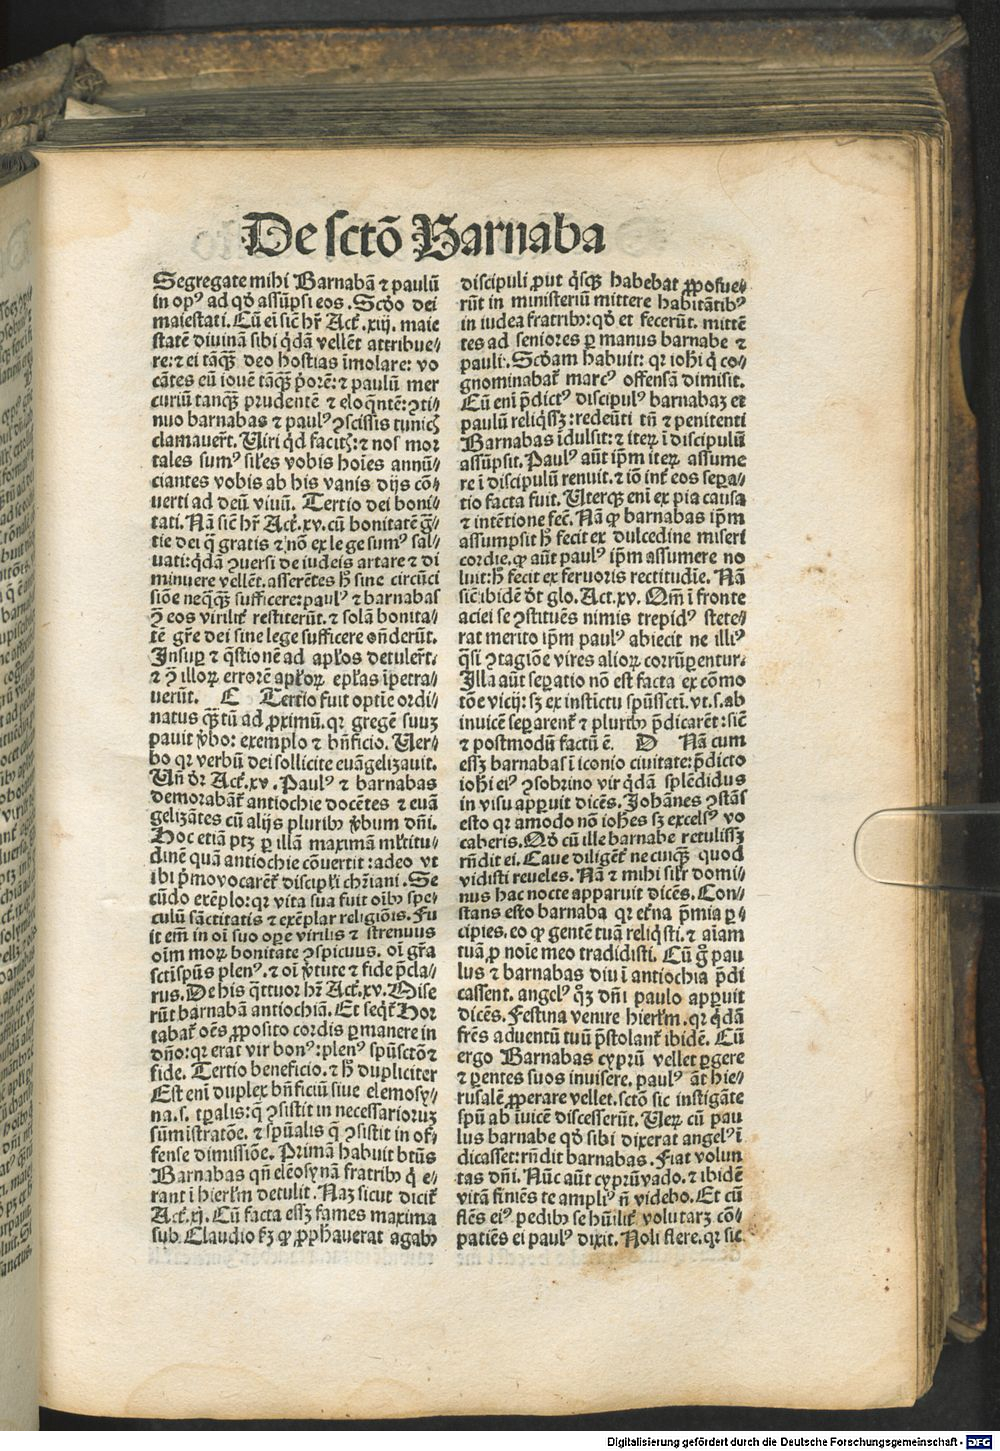 De sctō Barnaba
Segregate mihi Barnabā ⁊ paulū
in op⁹ ad qđ assūpsi eos. Scđo dei
maiestati. Cū ei sicut hr̄ Act. xiij. maie
statē divinā sibi q̄dā vellēt attribue⸗
re: ⁊ ei tāq̄ꝫ deo hostias īmolare: vo
cātes eū iovē tāq̄ꝫ p̄orē: ⁊ paulū mer
curiū tanq̄ꝫ prudentē ⁊ eloq̄ntē: ꝯti⸗
nuo barnabas ⁊ paul⁹ ꝯscissis tunicꝭ
clamaverūt. Uiri qͥd facitꝭ: ⁊ nos mor
tales sum⁹ siles vobis hoīes annū⸗
ciantes vobis ab his vanis dijs cō⸗
verti ad deū vivū. Tertio dei boni⸗
tati. Nā sicut hr̄ Act. xv. cū bonitatē gr̄⸗
tie dei q̄ gratis ⁊ nō ex lege sum⁹ sal⸗
vati: q̄dā ꝯversi de iudeis artare ⁊ di
minuere vellēt. asserētes hͦ sine circūci
siōe neq̄q̄ꝫ sufficere: paul⁹ ⁊ barnabas
ꝯ eos virilit̄ restiterūt. ⁊ solā bonita⸗
tē gr̄e dei sine lege sufficere on̄derūt.
Insuꝑ ⁊ q̄stionē ad apl̄os detuler̄t.
⁊ ꝯ illoꝝ errorē apl̄oꝝ ep̄las īpetra⸗
verūt. C Tertio fuit optīe ordi⸗
natus q̄ꝫtū ad ꝓximū. qꝛ gregē suuꝫ
pavit v̄bo: exemplo ⁊ bn̄ficio. Uer⸗
bo qꝛ verbū dei sollicite euāgelizavit.
Un̄ dr̄ Act. xv. Paul⁹ ⁊ barnabas
demorabāt̄ antiochie docētes ⁊ euā
gelizātes cū alijs pluribꝰ v̄bum dn̄i.
Hoc etiā ptꝫ ꝑ illā maximā ml̄titu⸗
dinē quā antiochie cōvertit: adeo vt
ibi p̄mo vocarēt̄ discipl̄i chr̄iani. Se
cūdo exēplo: qꝛ vita sua fuit oībꝰ spe⸗
culū sāctitatis ⁊ exēplar religiōis. Fu
it em̄ in oī suo oꝑe virilis ⁊ strenuus
oīm morꝝ bonitate ꝯspicuus. oī gr̄a
sctī spūs plen⁹. ⁊ oī v̄tute ⁊ fide p̄cla⸗
rus. De his q̄ttuor hr̄ Act. xv. Mise
rūt barnabā antiochiā. Et seqͥt̄ Hor
tabat̄ oēs ꝓposito cordis ꝑmanere in
dn̄o: qꝛ erat vir bon⁹: plen⁹ spūsctō ⁊
fide. Tertio beneficio. ⁊ hͦ dupliciter
Est enī duplex bn̄ficiū siue elemosy⸗
na. s. tꝑalis: q̄ ꝯsistit in necessarioruꝫ
sūmistratōe. ⁊ spūalis q̄ ꝯsistit in of⸗
fense dimissiōe. Primā habuit btūs
Barnabas qn̄ eleōsynā fratribꝰ qͥ e⸗
rant ī hierlm̄ detulit. Naꝫ sicut dicit̄
Act. xj. Cū facta essꝫ fames maxima
sub Claudio fꝫ qͦ ꝓphaverat agabꝰ
discipuli ꝓut qͥsqꝫ habebat ꝓposue⸗
rūt in ministeriū mittere habitātibꝰ
in iudea fratribꝰ: qđ et fecerūt. mittē
tes ad seniores ꝑ manus barnabe ⁊
pauli. Scđam habuit: qꝛ ioh̄i qͥ co⸗
gnominabat̄ marc⁹ offensā dimisit.
Cū enī p̄dict⁹ discipul⁹ barnabaꝫ et
paulū reliqͥssꝫ: redeūti tn̄ ⁊ penitenti
Barnabas īdulsit: ⁊ iteꝝ ī discipulū
assūpsit. Paul⁹ aūt ip̄m iteꝝ assume
re ī discipulū renuit. ⁊ iō int̄ eos seꝑa⸗
tio facta fuit. Uterqꝫ eni ex pia causa
⁊ intētione fec̄. Nā qͦ barnabas ip̄m
assumpsit hͦ fecit ex dulcedine miseri
cordie. qͦ aūt paul⁹ ip̄m assumere no
luit: hͦ fecit ex fervoris rectitudīe. Nā
sicut ibidē dr̄ glo. Act. xv. Qm̄ ī fronte
aciei se ꝯstituēs nimis trepid⁹ stete⸗
rat merito ip̄m paul⁹ abiecit ne illi⁹
qͣsi ꝯtagiōe vires alioꝝ corrūꝑentur.
Illa aūt seꝑatio nō est facta ex cōmo
tōe vicij: sꝫ ex instīctu spūsscti. vt. s. ab
invicē seꝑarent̄ ⁊ pluribꝰ p̄dicarēt: sicut
⁊ postmodū factū ē. D Nā cum
essꝫ barnabas ī iconio civitate: p̄dicto
ioh̄i ei⁹ ꝯsobrino vir q̄dā splēdidus
in visu apꝑuit dicēs. Johānes ꝯstās
esto qꝛ amodo nō ioh̄es sꝫ excels⁹ vo
caberis. Qđ cū ille barnabe retulissꝫ
rn̄dit ei. Cave diligēt̄ ne cuiqꝫ quod
vidisti reveles. Nā ⁊ mihi silr̄ domi⸗
nus hac nocte apparuit dicēs. Con⸗
stans esto barnaba qꝛ et̄na p̄mia ꝑ⸗
cipies. eo qͦ gentē tuā reliqͥsti. ⁊ aīam
tuā ꝓ noīe meo tradidisti. Cū gͦ pau
lus ⁊ barnabas diu ī antiochia p̄di
cassent. angel⁹ qͦꝫ dn̄i paulo apꝑuit
dicēs. Festina venire hierlm̄. qꝛ qͥdā
fr̄es adventū tuū p̄stolant̄ ibidē. Cū
ergo Barnabas cyprū vellet ꝑgere
⁊ ꝑentes suos invisere. paul⁹ āt hie⸗
rusalē ꝓperare vellet. sctō sic instigāte
spū ab īvicē discesserūt. Ueꝝ cū pau
lus barnabe qđ sibi dixerat angel⁹ ī
dicasset: rn̄dit barnabas. Fiat volun
tas dn̄i. Nūc aūt cyprū vado. ⁊ ibidē
vitā finiēs te ampli⁹ n̄ videbo. Et cū
flēs ei⁹ pedibꝰ se hūilit̄ volutarꝫ cō⸗
patiēs ei paul⁹ dixit. Noli flere. qꝛ sic
Digitalisierung gefördert durch die Deutsche Forschungsgemeinschaft - DFG